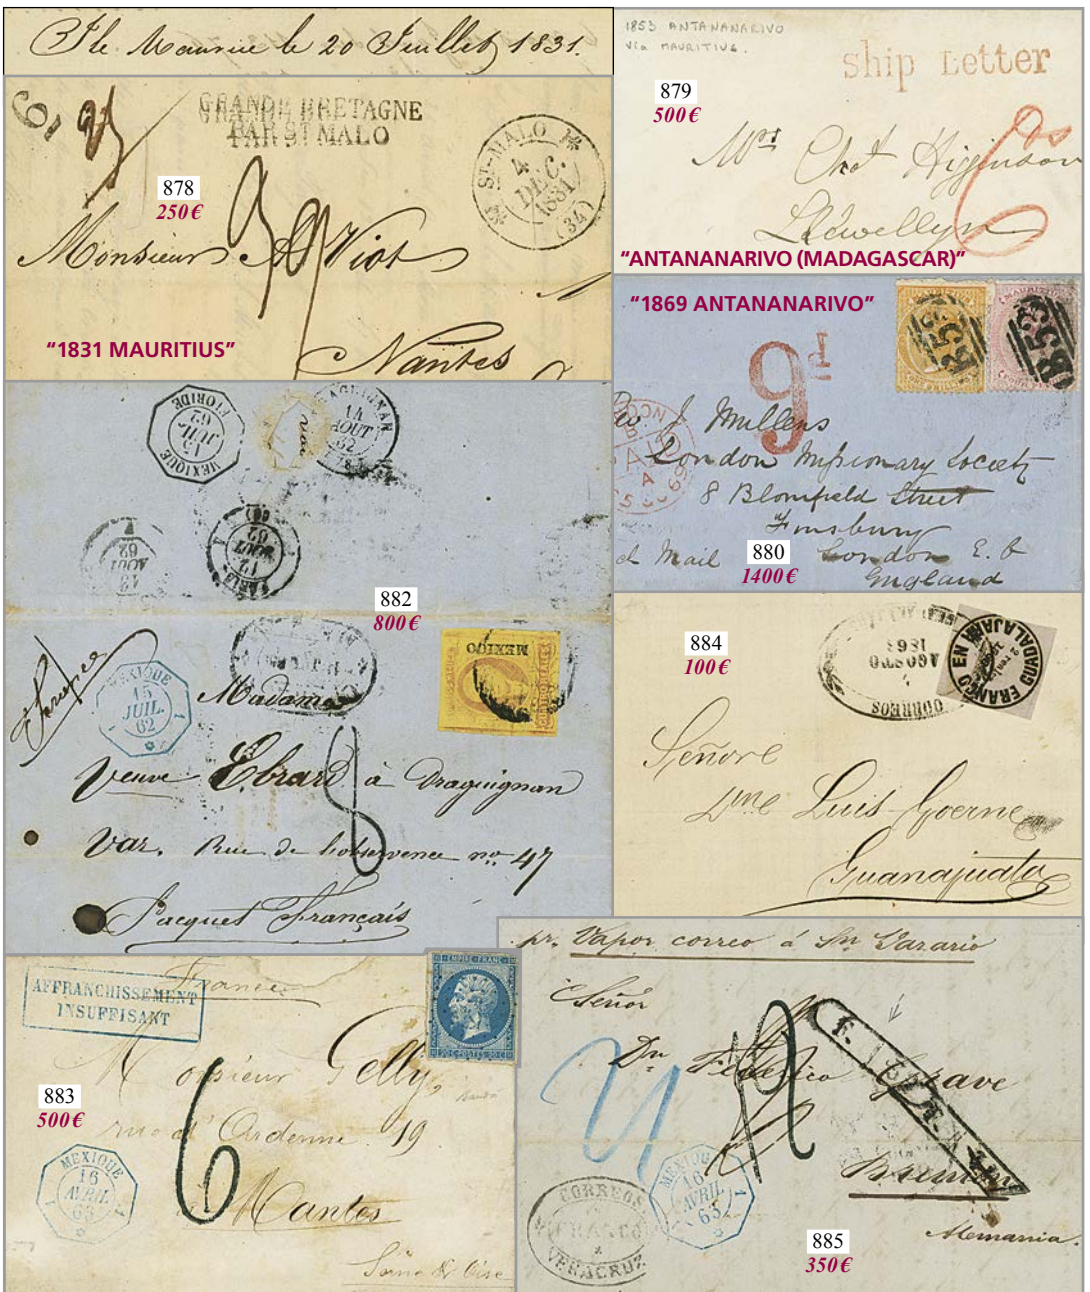 Ile Maurice le 20 Juillet 1831.
GRANDE BRETAGNE
PAR ST MALO
ST-MALO
4
DEC.
1831
(34)
878
250 €
Monsieur A Viot
Nantes
"1831 MAURITIUS"
1853 ANTANANARIVO
Via MAURITIUS.
Ship Letter
879
500 €
6
Llewellyn
"ANTANANARIVO (MADAGASCAR)"
"1869 ANTANANARIVO"
MAURITIUS
B53
B53
9d
Rev J Mullens
London Missionary Society
8 Blomfield Street
Finsbury
London E.C
England
Mail
880
1400 €
MEXIQUE
15
JUIL.
62
FLORIDE
14
AOUT
62
PARIS
12
AOUT
62
(60)
13
AOUT
62
882
800 €
MEXICO
MEXIQUE
15
JUIL.
62
Madame
Veuve Ebrard à Draguignan
Var. Rue de l'observence no. 47
Pacquet Français
8
884
100 €
AGOSTO
1863
CORREOS
FRANCO EN GUADALAJARA
Señores
Dne Luis Goerne
Guanajuato
France
AFFRANCHISSEMENT
INSUFFISANT
EMPIRE FRANC
20 C POSTES 20 C
883
500 €
Monsieur Gelly,
rue d'Ardenne 19
Mantes
Seine & Oise
6
MEXIQUE
16
AVRIL
63
pr. Vapor correo á Sn Nazario
Señor
Dn Federico Grave
Bremen
Alemania.
MEXIQUE
16
AVRIL
63
CORREOS
FRANCO
VERACRUZ
885
350 €